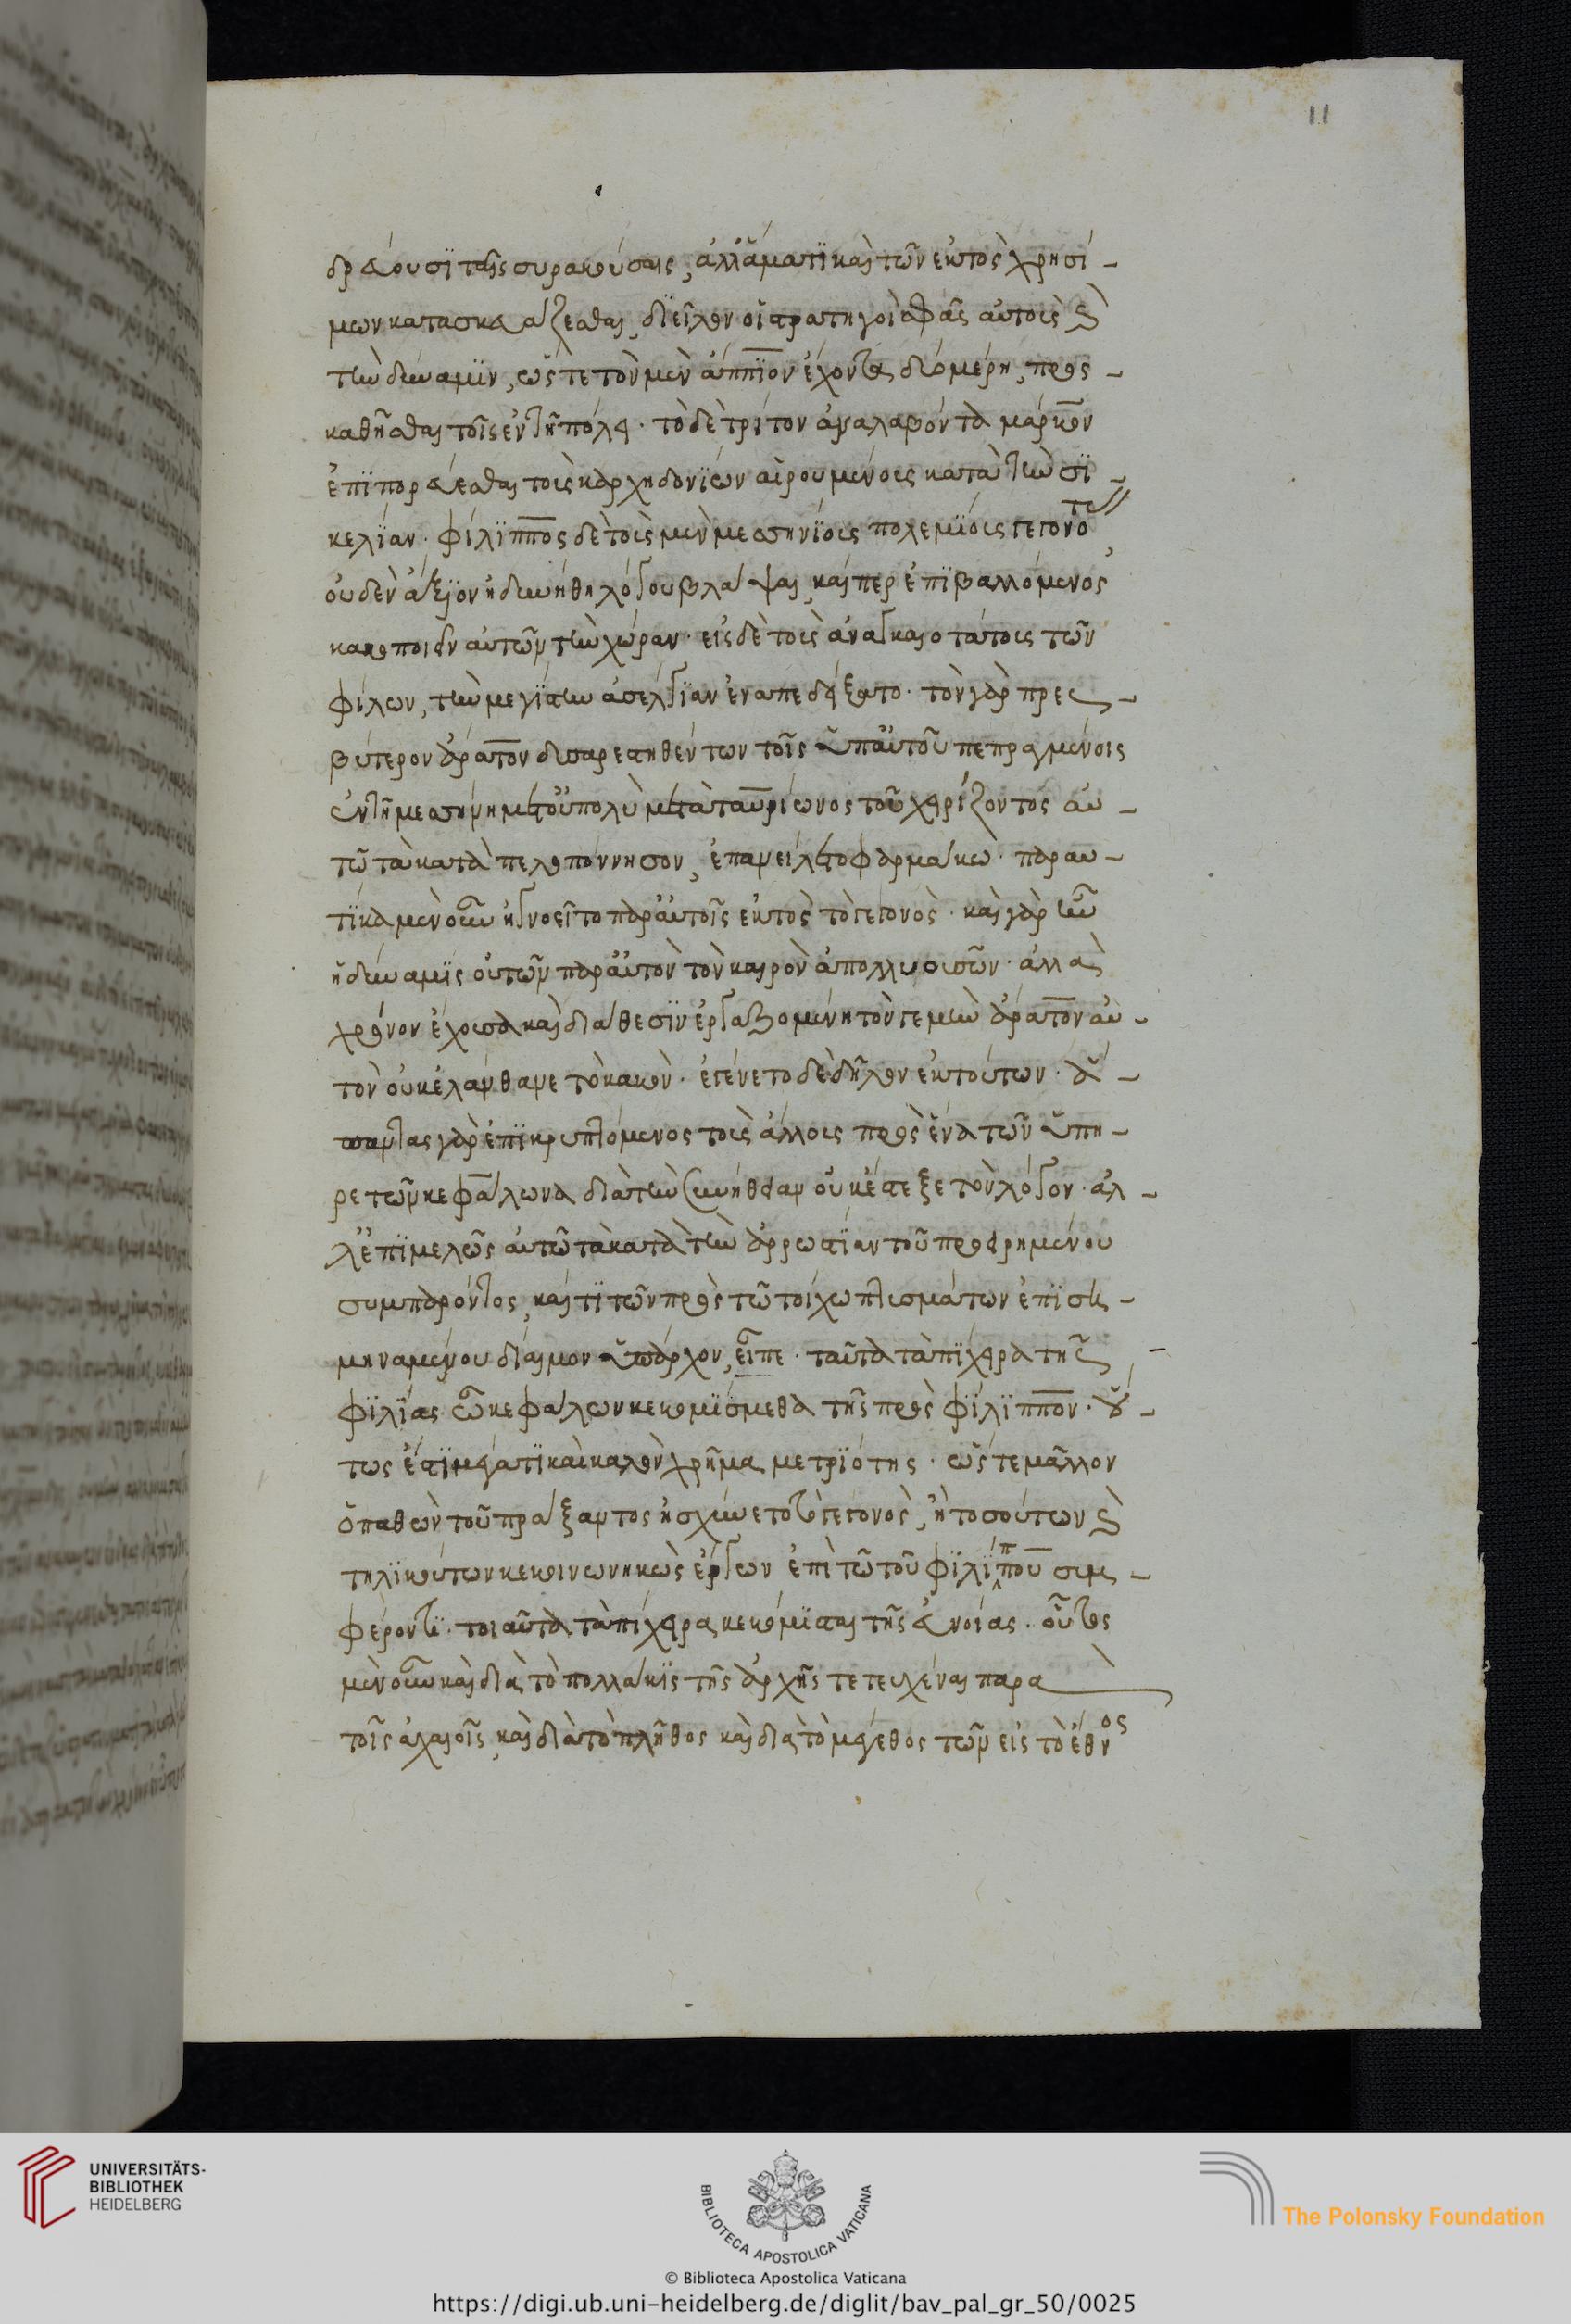 11
δρεύουσι ταῖς συρακούσαις, ἀλλἅματι καὶ τῶν ἐκτὸς χρησί-
μων κατασκευάζεσθαι, διεῖλον οἱ στρατηγοὶ σφᾶς αὐτοὺς καὶ
τὴν δύναμιν, ὥστε τὸν μὲν ἄππιον ἔχοντα δύο μέρη, προς-
καθῆσθαι τοῖς ἐν τῆ πόλει. τὸ δὲ τρίτον ἀναλαβόντα μάρκον
ἐπιπορεύεσθαι τοὺς καρχηδονίων αἱρουμένους κατὰ τὴν σι-
κελίαν. φίλιππος δὲ τοὺς μὲν μεσσηνίους πολεμίους γεγονότας
οὐδὲν ἄξιον ἠδυνήθη λόγου βλάψαι, καίπερ ἐπιβαλλόμενος
κακοποιεῖν αὐτῶν τὴν χώραν. εἰς δὲ τοὺς ἀναγκαιοτάτους τῶν
φίλων, τὴν μεγίστην ἀσέλγιαν ἐναπεδείξατο. τὸν γὰρ πρεσ-
βύτερον ἄρατον δυσαρεστηθέντων τοῖς ὑπαὐτοῦ πεπραγμένοις
ἐν τῆ μεσσήνη μετοὐπολὺ μετὰ ταυρίωνος τοῦ χειρίζοντός αὐ-
τῶ τὰ κατὰ πελοπόννησον, ἐπανείλετο φαρμάκω. παραυ-
τίκα μὲν οὖν ἠγνοεῖτο παρἀυτοῖς ἐκτὸς τὸ γεγονός. καὶ γὰρ ἦν
ἡ δύναμις οὐ τῶν παρἀυτὸν τὸν καιρὸν ἀπολλυουσῶν. ἀλλὰ
χρόνον ἔχουσα καὶ διάθεσιν ἐργαζομένη τόν γε μὴν ἄρατον αὐ-
τὸν οὐκ ἐλάνθανε τὸ κακόν. ἐγένετο δὲ δῆλον ἐκ τούτων. ἅ-
παντας γὰρ ἐπικρυπτόμενος τοὺς ἄλλους πρὸς ἕνα τῶν ὑπη-
ρετῶν κεφάλωνα διὰ τὴν συνήθειαν οὐκ ἔστεξε τὸν λόγον. ἀλ-
λἐπιμελῶς αὐτῶ τὰ κατὰ τὴν ἀρρωστίαν τοῦ προειρημένου
συμπαρόντος, καί τι τῶν πρὸς τῶ τοίχω πτυσμάτων ἐπιση-
μηναμένου δίαιμον ὑπάρχον, εἶπε. ταῦτα τἀπίχειρα τῆς
φιλίας ὦ κεφάλων κεκομίσμεθα τῆς πρὸς φίλιππον. οὕ-
τως ἐστὶ μέγα τι καὶ καλὸν χρῆμα μετριότης. ὥστε μᾶλλον
ὁ παθὼν τοῦ πράξαντος ἠσχύνετο τὸ γεγονός, ἢ τοσούτων καὶ
τηλικούτων κεκοινωνηκὼς ἔργων ἐπὶ τῶ τοῦ φιλίππου συμ-
φέροντι. τοιαῦτα τἀπίχειρα κεκόμισται τῆς εὐνοίας. οὗτος
μὲν οὖν καὶ διὰ τὸ πολλάκις τῆς ἀρχῆς τετευχέναι παρὰ
τοῖς ἀχαιοῖς, καὶ διὰ τὸ πλῆθος καὶ διὰ τὸ μέγεθος τῶν εἰς τὸ ἔθνος
UNIVERSITÄTS-
BIBLIOTHEK
HEIDELBERG
BIBLIOTECA APOSTOLICA VATICANA
The Polonsky Foundation
© Biblioteca Apostolica Vaticana
https://digi.ub.uni-heidelberg.de/diglit/bav_pal_gr_50/0025